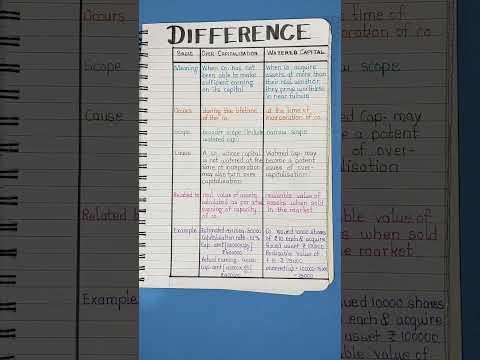 DIFFERENCE
BASIS
OVER-CAPITALISATION
WATERED CAPITAL
Meaning
When co. has not
been able to make
sufficient earning
on its capital
When co. acquire
assets at more than
their real worth or
they prove worthless
in near future
Occurs
during the lifetime
of the co.
at the time of
incorporation of co.
Scope
broader scope (Include
watered cap.)
narrow scope
Cause
A co. whose capital
is not watered at the
time of incorporation
may also turn over
capitalisation
Watered Cap- may
become a potent
cause of over-
capitalisation
Related to
real value of assets
calculated as per
earning of capacity
of co.
realisable value of
assets when sold
in the market
Example
Co. issued 10000 shares
of ₹10 each & acquire
fixed asset ₹ 100000
Realisable value of
Occurs
time of
Scope
scope
Cause
Cap- may
a potent
of over-
alisation
Related b
value of
when sold
market
Example
issued 10000 shares
each & acquire
asset ₹ 100000
value of